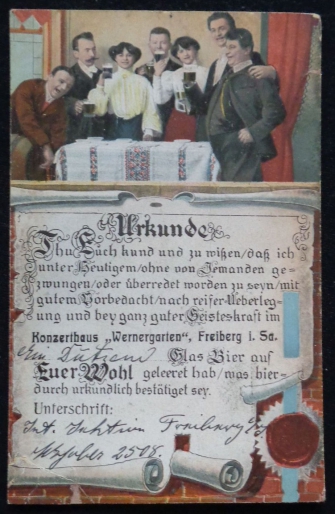 Urkunde
Thu Euch kund und zu wißen/daß ich
unter Heutigem/ohne von Jemanden ge-
zwungen/oder überredet worden zu seyn/mit
gutem Vorbedacht/nach reifer Ueberleg-
ung und bey ganz guter Geisteskraft im
Konzerthaus „Wernergarten", Freiberg i. Sa.
ein Dutzend Glas Bier auf
Euer Wohl geleeret hab/was hier-
durch urkundlich bestätiget sey.
Unterschrift: